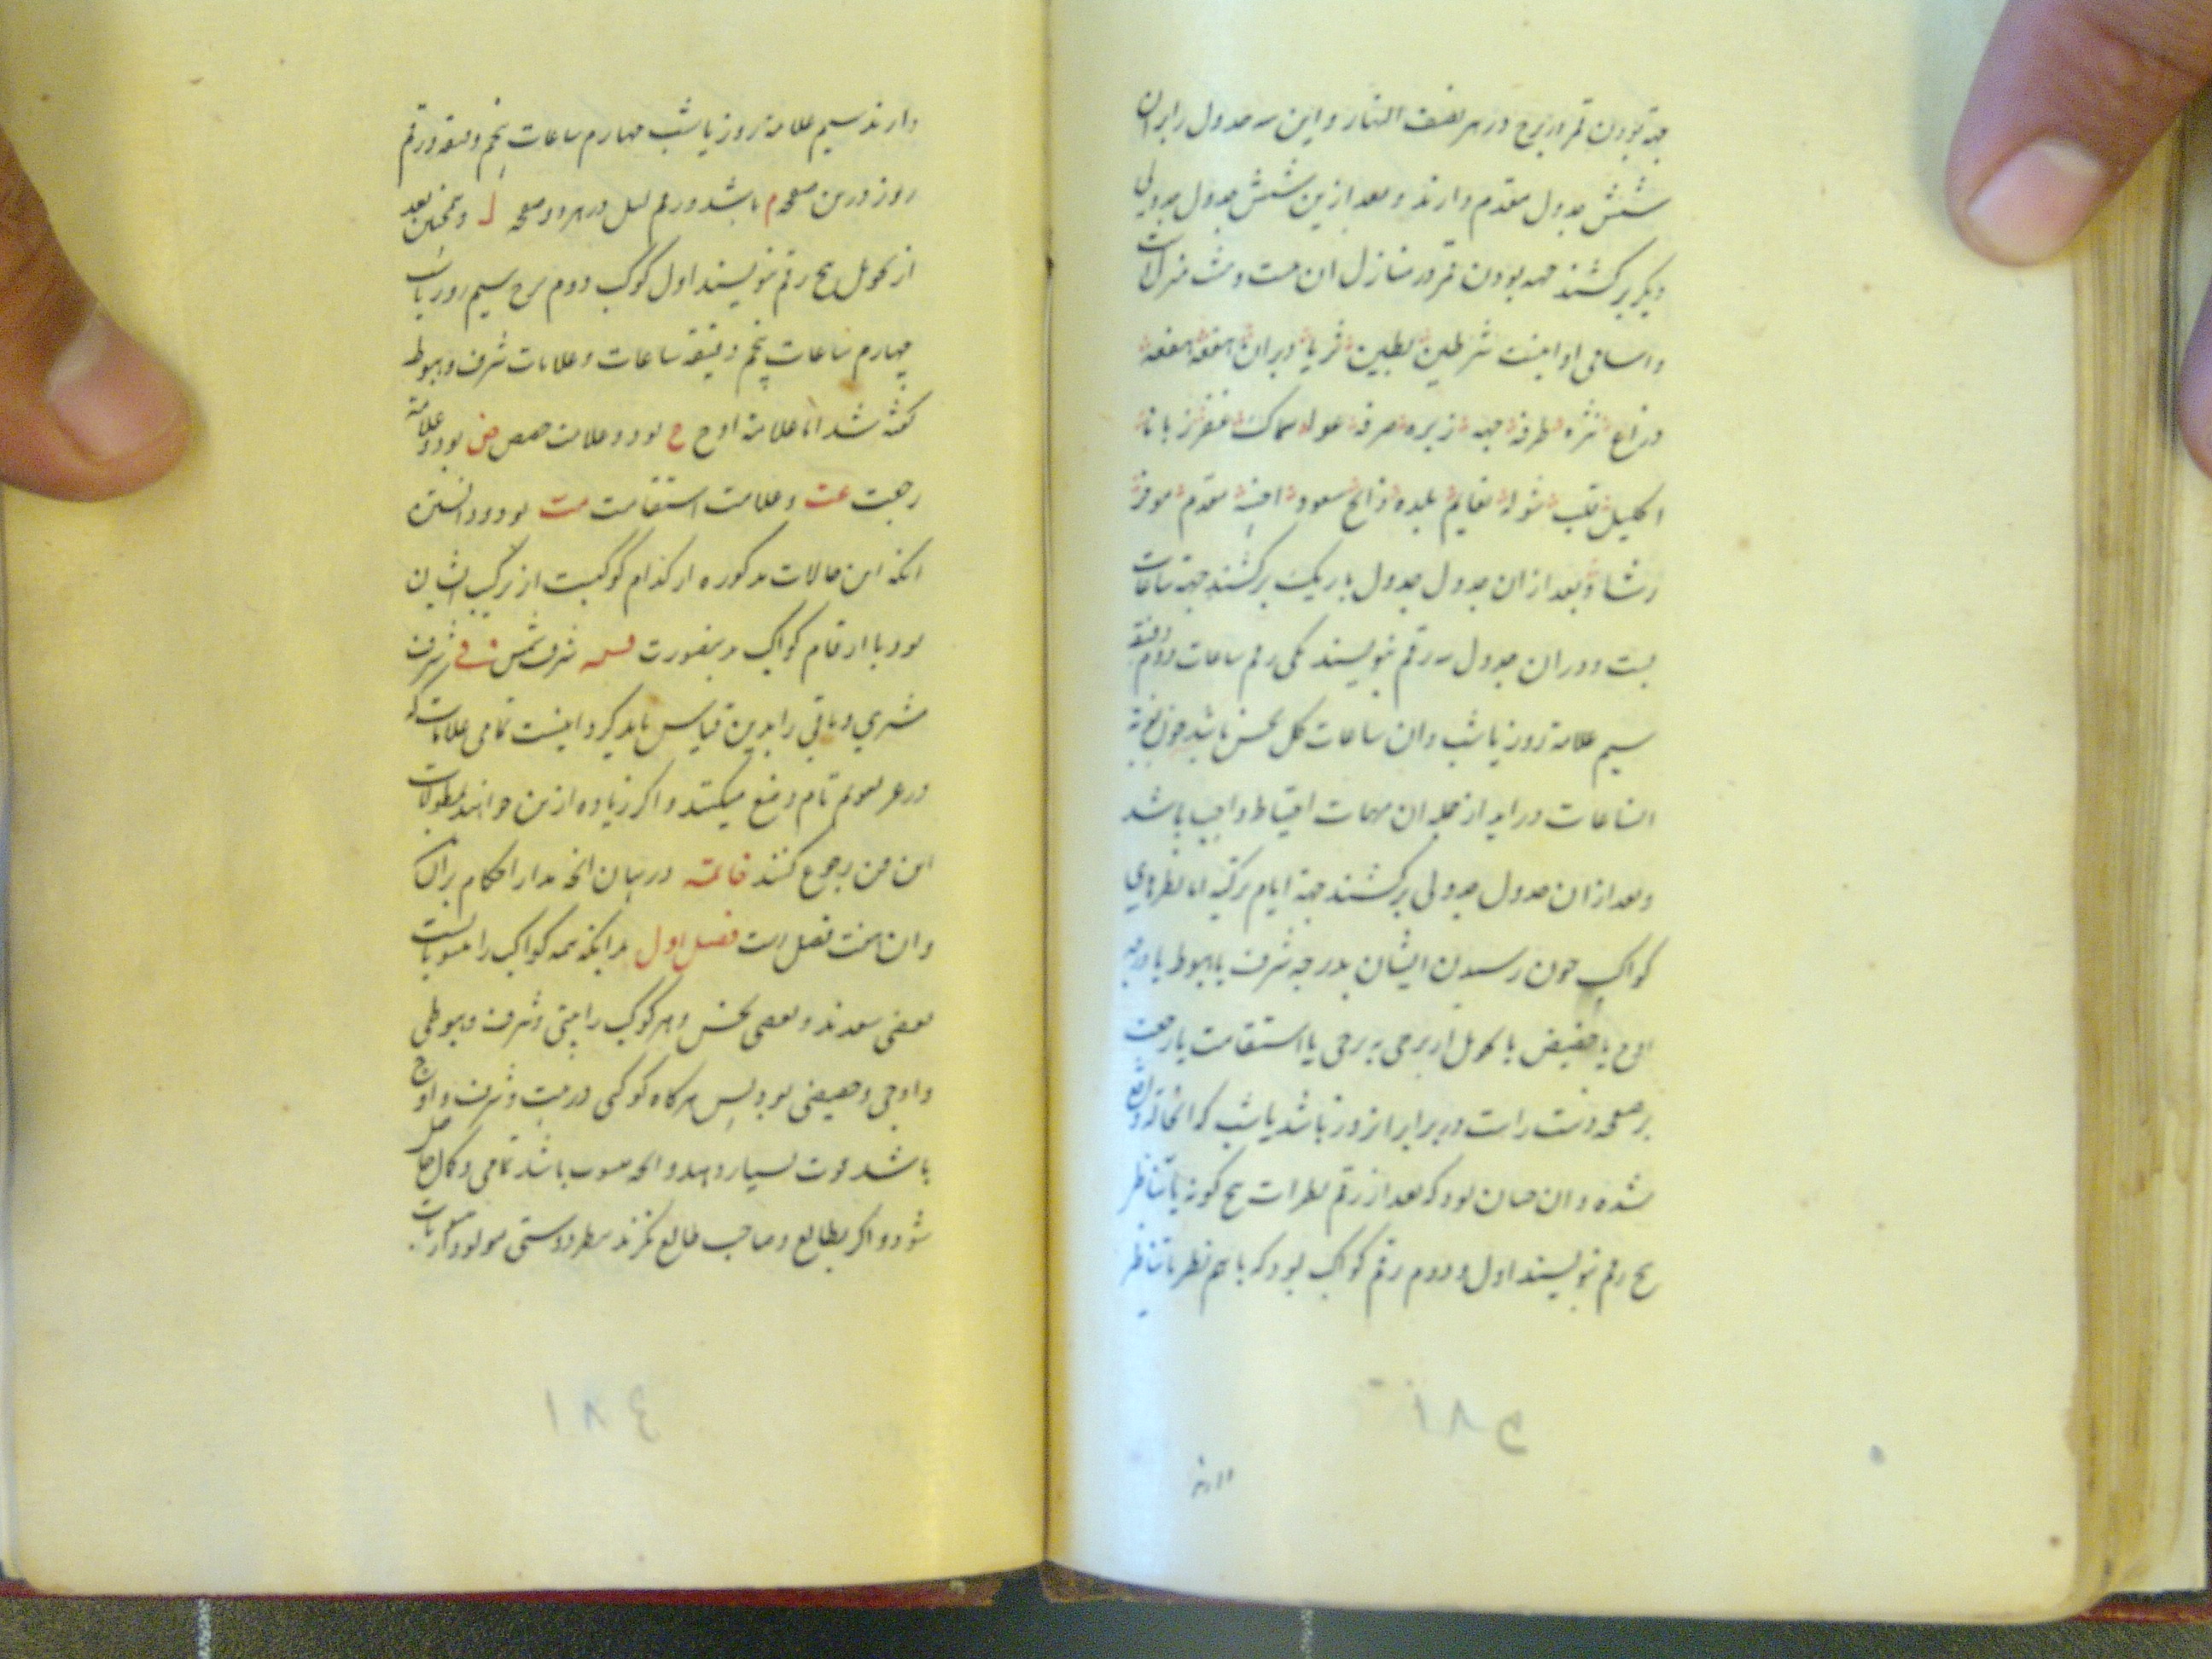 جهة بودن قمر در برج در هر نصف النهار و این سه جدول را بر ان
شش جدول مقدم دارند و بعد ازین شش جدول جدولی
دیکر برکشند جهه بودن قمر در منازل ان بیست و هشت منزلست
و اسامی او اینست شرطین بطین ثریا دبران هقعه هنعه
دراع نثره طرفه جبهه زبره صرفه عوا سماک غفر زبانا
اکلیل قلب شوله نعایم بلده ذابح سعود اخبیه مقدم موخر
رشا و بعد از ان جدول جدول باریک برکشند جهة ساعات
بست و در ان جدول سه رقم نویسند یکی رقم ساعات دوم دقیقه
سیم علامة روز یا شب و ان ساعات کل نحس باشد چون نوبه
الساعات دراید از جمله ان مهمات احتیاط واجب باشد
و بعد از ان جدول جدولی برکشند جهة ایام ترکیه اما نظرهای
کواکب چون رسیدن ایشان بدرجه شرف یا هبوط یا درجه
اوج یا حضیض یا تحویل از برجی به برجی یا استقامت یا رجعت
بر صفحه دست راست در برابر انروز باشد یا شب که انحاله واقع
شده و ان چنان بود که بعد از رقم نظرات هیچ کونه یا تناظر
پنج رقم نویسند اول و دوم رقم کواکب بود که با هم نظر یا تناظر
۱۸۵
دارند
دارند سیم علامة روز یا شب چهارم ساعات پنجم دقیقه و رقم
روز درین صفحه م باشد و رقم لیل در هر دو صفحه ل و همچنین بعد
از تحویل پنج رقم نویسند اول کوکب دوم برج سیم روز یا شب
چهارم ساعات پنجم دقیقه ساعات و علامات شرف و هبوط
کفته شد اما علامة اوج ح بود و علامت حضیض ض بود و علامة
رجعت عت و علامت استقامت مت بود و دانستن
انکه این حالات مذکوره از کدام کوکبست از ترکیب ایشان
بود با ارقام کواکب بدینصورت فسه شرف شمس فی شرف
مشتری و باقی را بدین قیاس باید کرد و اینست تمامی علامات که
در تقویم تام وضع میکنند و اکر زیاده ازین خواهند بمطولات
این فن رجوع کنند خاتمه در بیان انچه مدار احکام بر انست
و ان هفت فصل است فصل اول بدانکه همه کواکب را منسوباتست
بعضی سعدند و بعضی نحس و هر کوکب را بیتی و شرف و هبوطی
و اوجی و حضیضی بود پس هرکاه کوکبی در بیت و شرف و اوج
باشد قوت بسیار دهد و انچه منسوب باشد تمامی و کمال حاصل
شود و اکر بطالع و صاحب طالع نکرند بنظر دوستی مولود را
۱۸٤